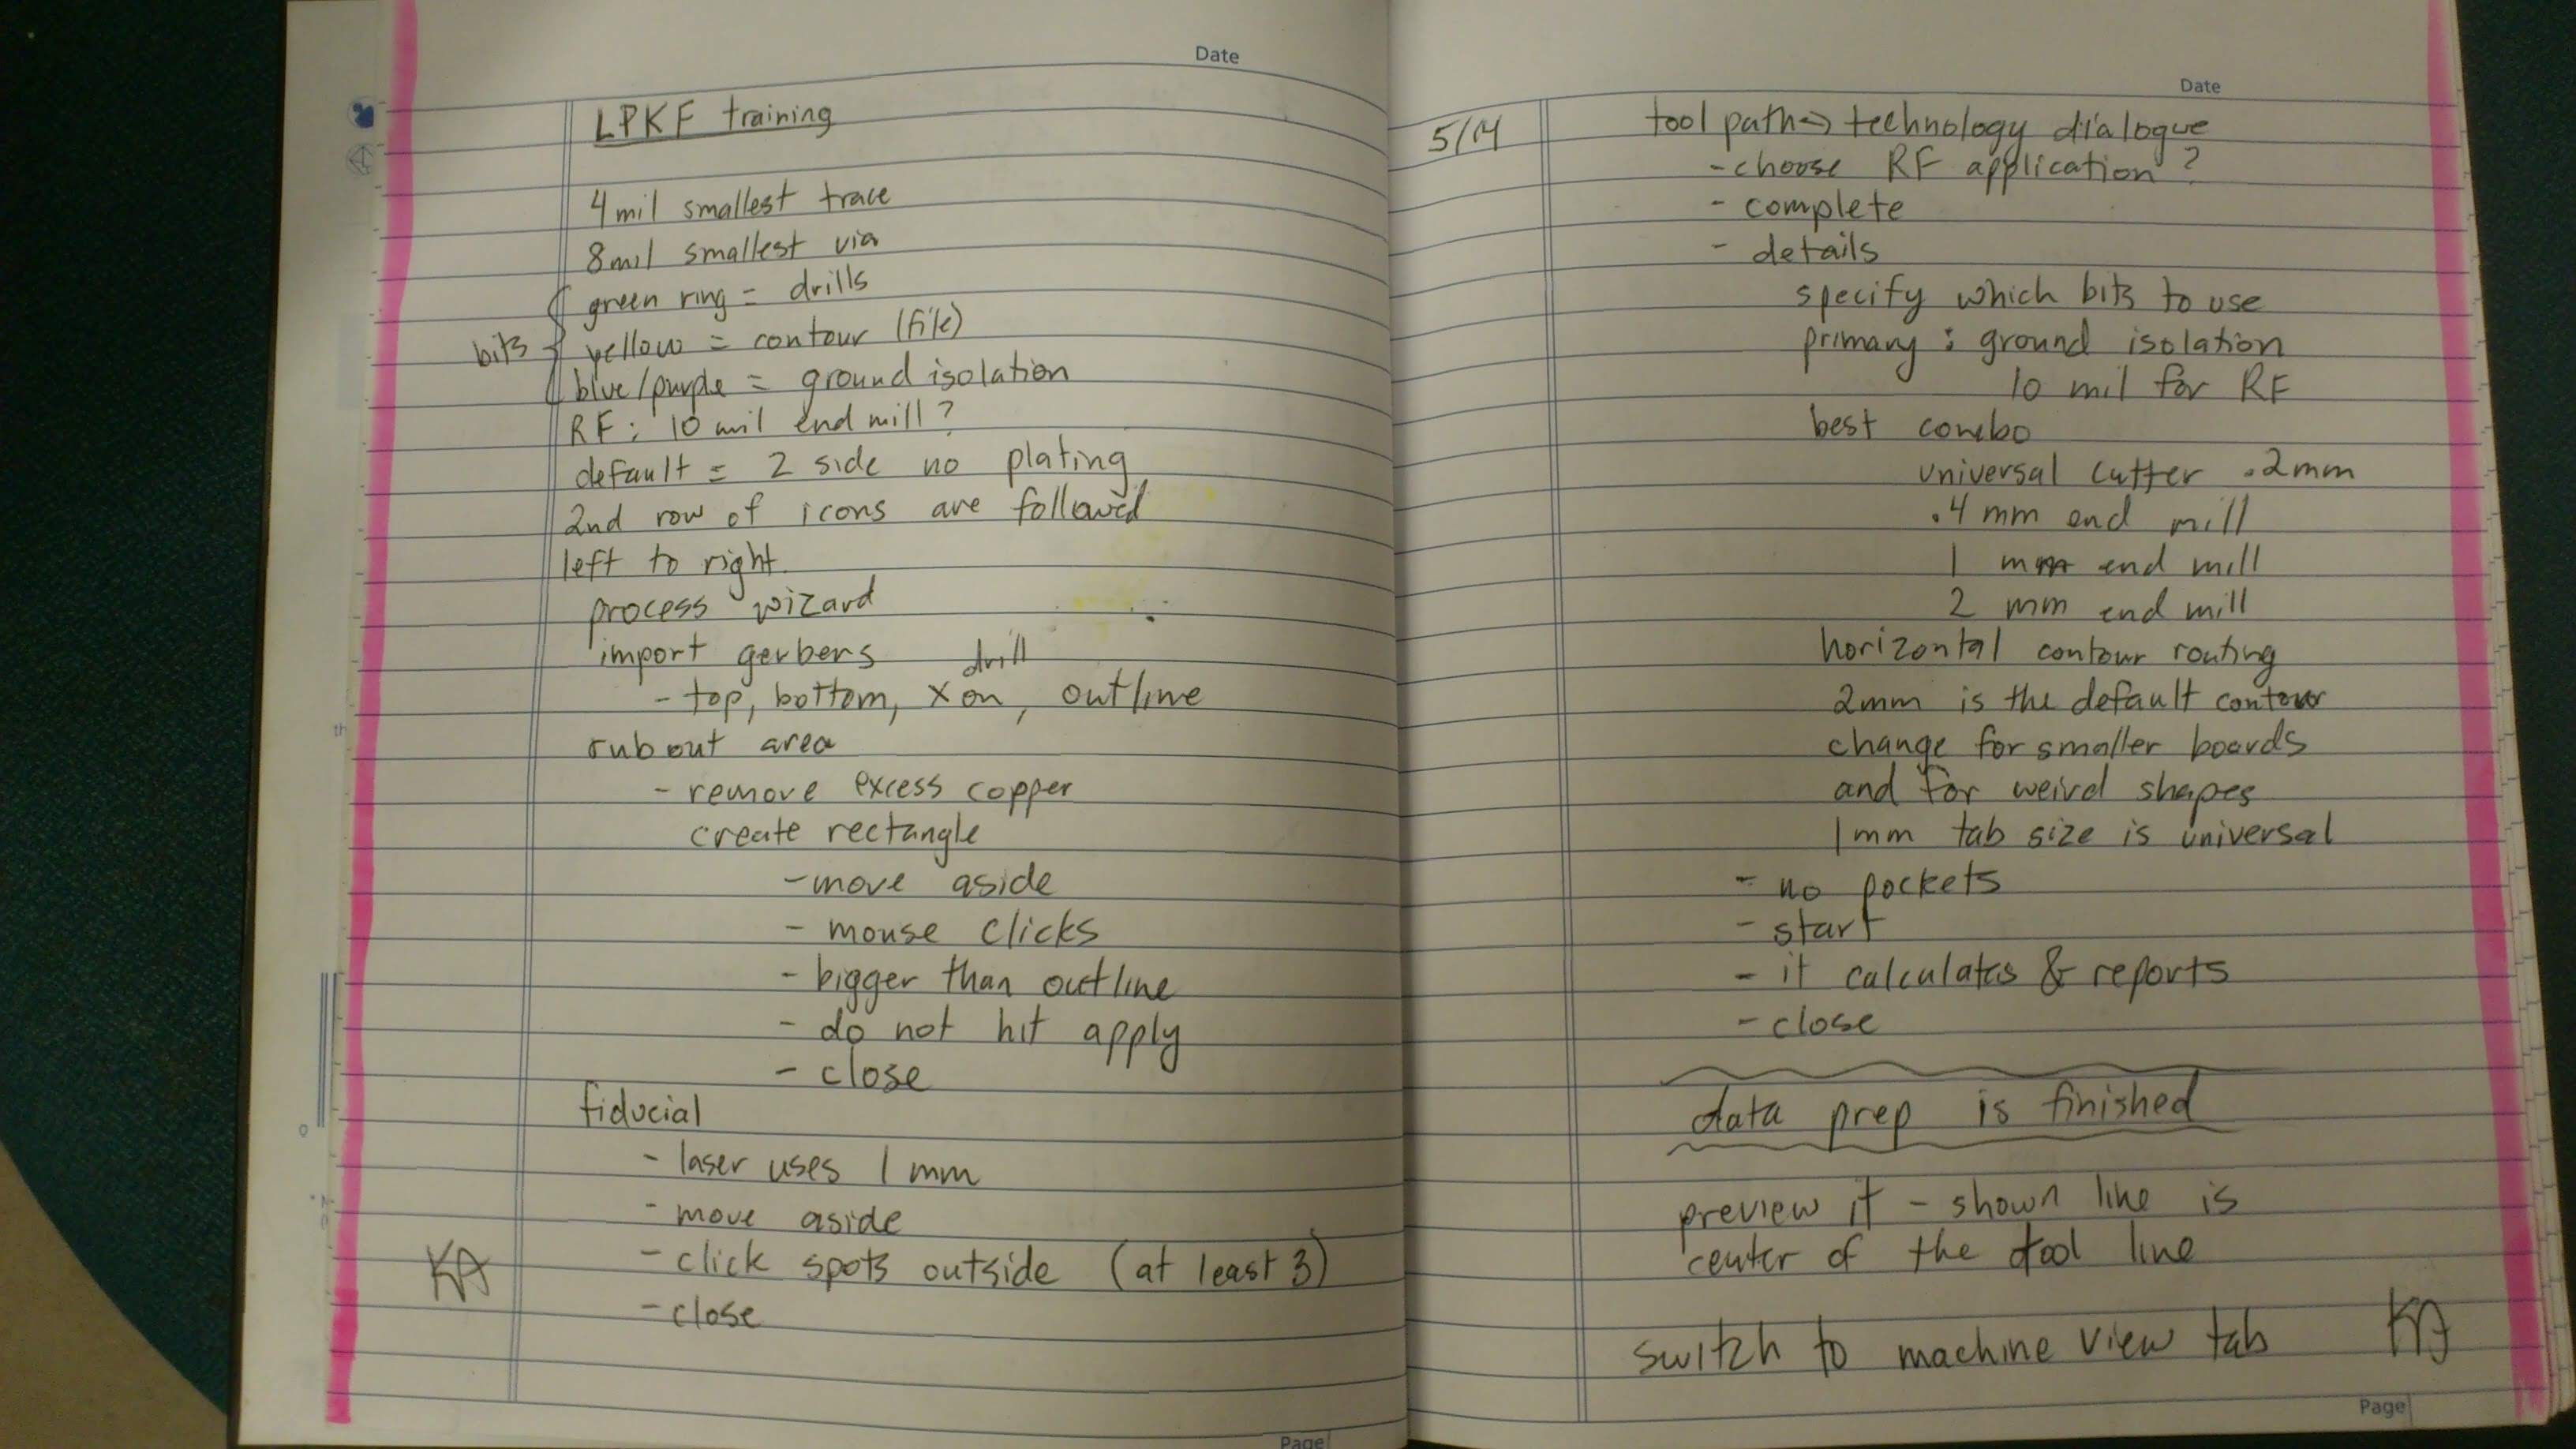 Date
LPKF training
4 mil smallest trace
8 mil smallest via
green ring = drills
bits
yellow = contour (file)
blue/purple = ground isolation
RF: 10 mil end mill?
default = 2 side no plating
2nd row of icons are followed
left to right.
process wizard
import gerbers
drill
- top, bottom, xon, outline
rubout area
- remove excess copper
create rectangle
- move aside
- mouse clicks
- bigger than outline
- do not hit apply
- close
fiducial
- laser uses 1 mm
- move aside
KA
- click spots outside (at least 3)
- close
Page
Date
5/14
tool path → technology dialogue
- choose RF application?
- complete
- details
specify which bits to use
primary: ground isolation
10 mil for RF
best combo
universal cutter .2mm
.4 mm end mill
1 mm end mill
2 mm end mill
horizontal contour routing
2mm is the default contour
change for smaller boards
and for weird shapes
1mm tab size is universal
- no pockets
- start
- it calculates & reports
- close
data prep is finished
preview it - shown line is
center of the tool line
switch to machine view tab
KA
Page